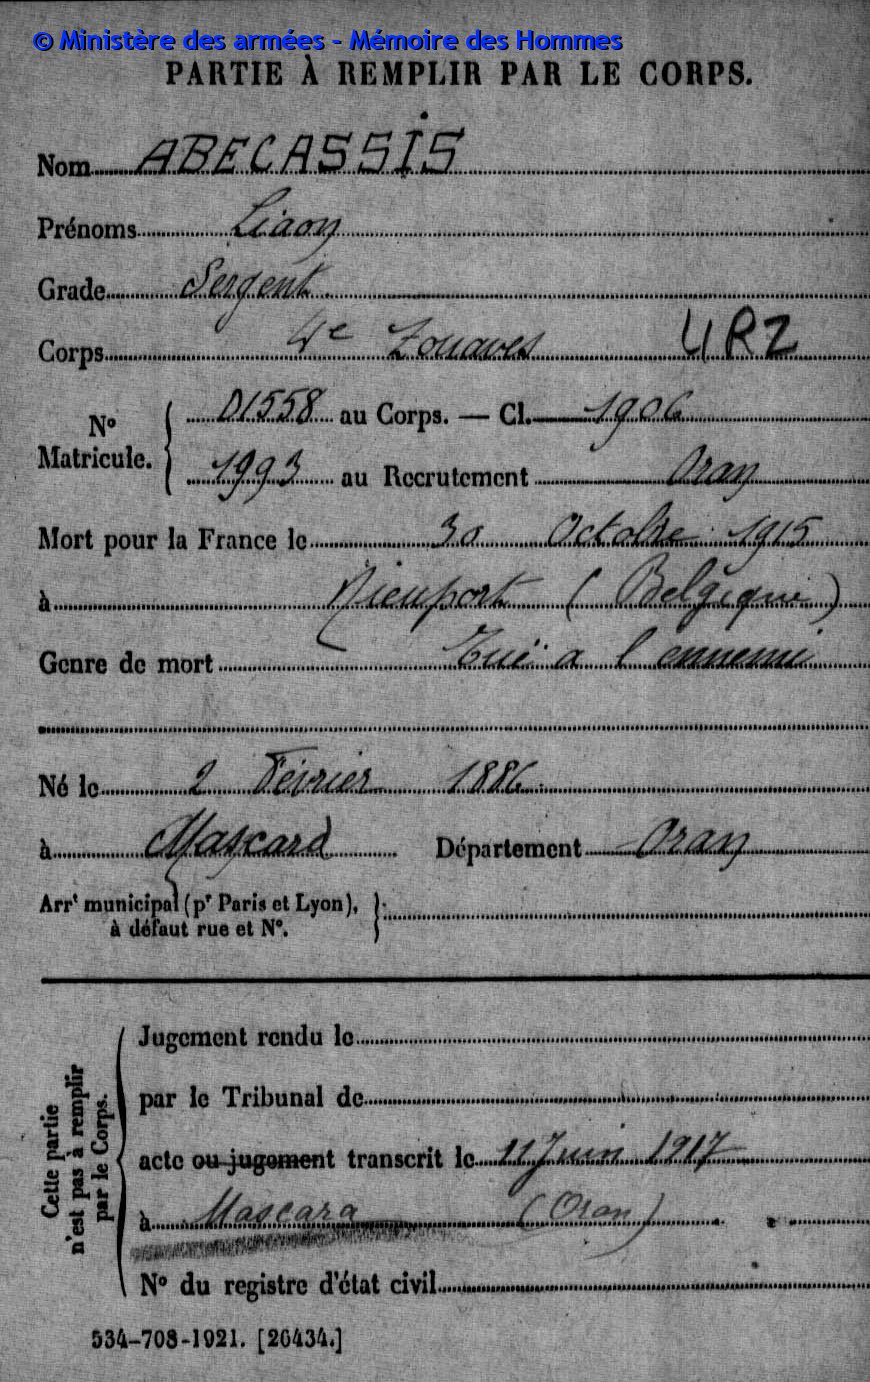 © Ministère des armées - Mémoire des Hommes
PARTIE À REMPLIR PAR LE CORPS.
Nom ABECASSIS
Prénoms Liaon
Grade Sergent
Corps 4e Zouaves 4RZ
No Matricule. { 01558 au Corps. — Cl. 1906
1993 au Recrutement Oran
Mort pour la France le 30 Octobre 1915
à Nieuport (Belgique)
Genre de mort Tué a l'ennemi
Né le 2 Février 1886
à Mascara Département Oran
Arrt municipal (pr Paris et Lyon),
à défaut rue et No. }
Cette partie
n'est pas à remplir
par le Corps.
Jugement rendu le
par le Tribunal de
acte ou jugement transcrit le 11 Juin 1917
à Mascara (Oran)
No du registre d'état civil
534-708-1921. [26434.]